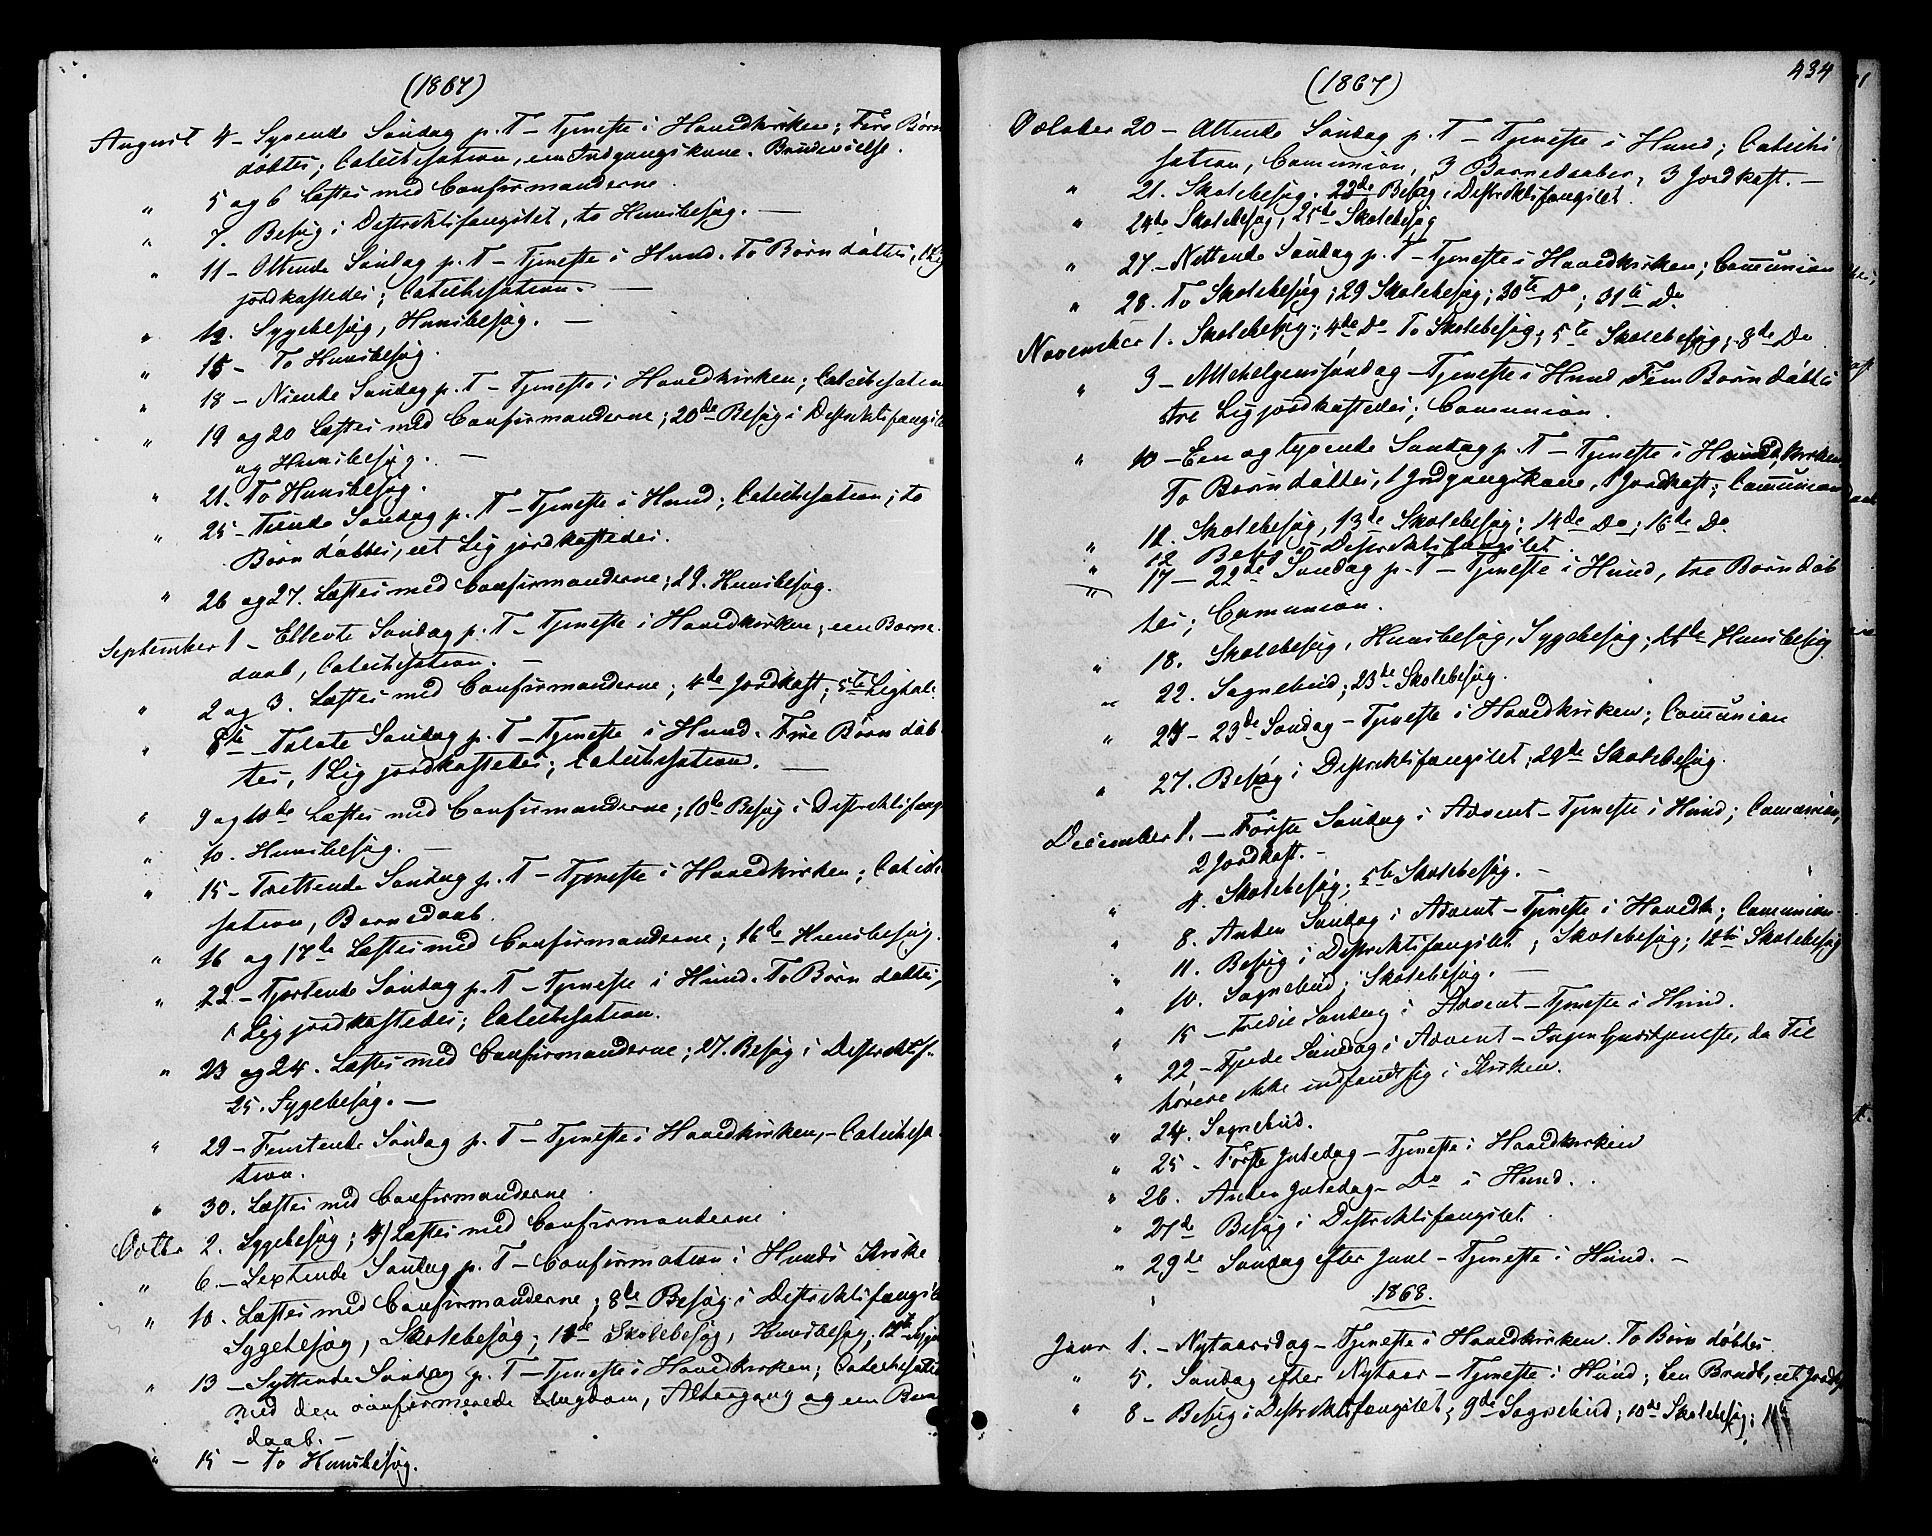 (1867)
August 4 – Syvende Søndag p. T – Tjeneste i Hovedkirken; Fire Børn
døbtes; Catechisation, een Indgangskone. Brudevielse.
" 5 og 6 Læstes med Confirmanderne.
" 7. Besøg i Distriktsfængslet, to Huusbesøg. —
" 11 – Ottende Søndag p. T – Tjeneste i Hund. To Børn døbtes, 1 Lig
jordkastedes; Catechisation. —
" 12. Sygebesøg, Huusbesøg. —
" 15 – To Huusbesøg.
" 18 – Niende Søndag p. T – Tjeneste i Hovedkirken; Catechisation
" 19 og 20 Læstes med Confirmanderne; 20de Besøg i Distriktsfængsle
og Huusbesøg. —
" 21. To Huusbesøg.
" 25 – Tiende Søndag p. T – Tjeneste i Hund; Catechisation; to
Børn døbtes, eet Lig jordkastedes.
" 26 og 27. Læstes med Confirmanderne; 29. Huusbesøg.
September 1 – Ellevte Søndag p. T – Tjeneste i Hovedkirken; een Barne-
daab, Catechisation. —
" 2 og 3. Læstes med Confirmanderne; 4de Jordkast; 5te Ligtale
" 8de – Tolvte Søndag p. T – Tjeneste i Hund. Fire Børn døb-
tes, 1 Lig jordkastedes; Catechisation. —
" 9 og 10de Læstes med Confirmanderne; 10de Besøg i Distriktsfæng
" 10. Huusbesøg. —
" 15 – Trettende Søndag p. T – Tjeneste i Hovedkirken; Catechi-
sation, Barnedaab.
" 16 og 17de Læstes med Confirmanderne; 16de Huusbesøg.
" 22 – Fjortende Søndag p. T – Tjeneste i Hund. To Børn døbtes,
1 Lig jordkastedes; Catechisation.
" 23 og 24. Læstes med Confirmanderne; 27. Besøg i Distriktsf.
25. Sygebesøg. —
" 29 – Femtende Søndag p. T – Tjeneste i Hovedkirken, – Catechisa-
tion.
" 30. Læstes med Confirmanderne.
Octbr 2. Sygebesøg; 4) Læstes med Confirmanderne
" 6. – Sextende Søndag p. T – Confirmation i Hunds Kirke
" 10. Læstes med Confirmanderne; 8de Besøg i Distriktsfængsle
Sygebesøg, Skolebesøg; 11de Skolebesøg, Huusbesøg; 12te
" 13 – Syttende Søndag p. T – Tjeneste i Hovedkirken; Catechisation
med den confirmerede Ungdom, Altergang og een Barne
daab. —
" 15 – To Huusbesøg.
(1867)
434
October 20 – Attende Søndag p. T – Tjeneste i Hund; Catechi
sation, Comunion, 3 Barnedaaber, 3 Jordkast. —
" 21. Skolebesøg; 23de Besøg i Distriktsfængslet.
" 24de Skolebesøg, 25de Skolebesøg
" 27 – Nittende Søndag p. T – Tjeneste i Hovedkirken; Comunion
" 28. To Skolebesøg; 29 Skolebesøg; 30te Do; 31te Do
November 1. Skolebesøg; 4de Do To Skolebesøg; 5te Skolebesøg; 8de Do
" 3 – Allehelgenssøndag – Tjeneste i Hund Fem Børn døbtes
tre Lig jordkastedes; Comunion.
" 10 – Een og tyvende Søndag p. T – Tjeneste i Hovedkirken
To Børn døbtes, 1 Indgangskone, 1 Jordkast; Comunion
" 12. Skolebesøg, 13de Skolebesøg; 14de Do; 16de Do
" 12 Besøg i Distriktsfængslet.
" 17 – 22de Søndag p. T – Tjeneste i Hund, tre Børn døb
tes; Comunion.
" 18. Skolebesøg, Huusbesøg, Sygebesøg; Huusbesøg
" 22. Sognebud; 23de Skolebesøg.
" 24 – 23de Søndag – Tjeneste i Hovedkirken; Comunion
" 27. Besøg i Distriktsfængslet, 29de Skolebesøg.
December 1. – Første Søndag i Advent – Tjeneste i Hund; Comunion,
2 Jordkast. –
" 4. Skolebesøg; 5te Skolebesøg. —
" 8. Anden Søndag i Advent – Tjeneste i Hovedk; Comunion
" 11. Besøg i Distriktsfængslet; Skolebesøg; 12te Skolebesøg
" 10. Sognebud; Skolebesøg. —
" 15 – Tredie Søndag i Advent – Tjeneste i Hund.
" 22 – Fjerde Søndag i Advent – Ingen Gudstjeneste, da Til
hørere ikke indfandt sig i Kirken.
" 24. Sognebud.
" 25 – Første Juledag – Tjeneste i Hovedkirken
" 26. Anden Juledag – Do i Hund.
" 27de Besøg i Distriktsfængslet.
" 29de Søndag efter Juul – Tjeneste i Hund. –
1868.
Janr 1. – Nytaarsdag – Tjeneste i Hovedkirken. To Børn døbtes
" 5. Søndag efter Nytaar – Tjeneste i Hund; Een Brudv, eet Jordk
" 8 – Besøg i Distriktsfængslet; 9de Sognebud; 10de Skolebesøg;